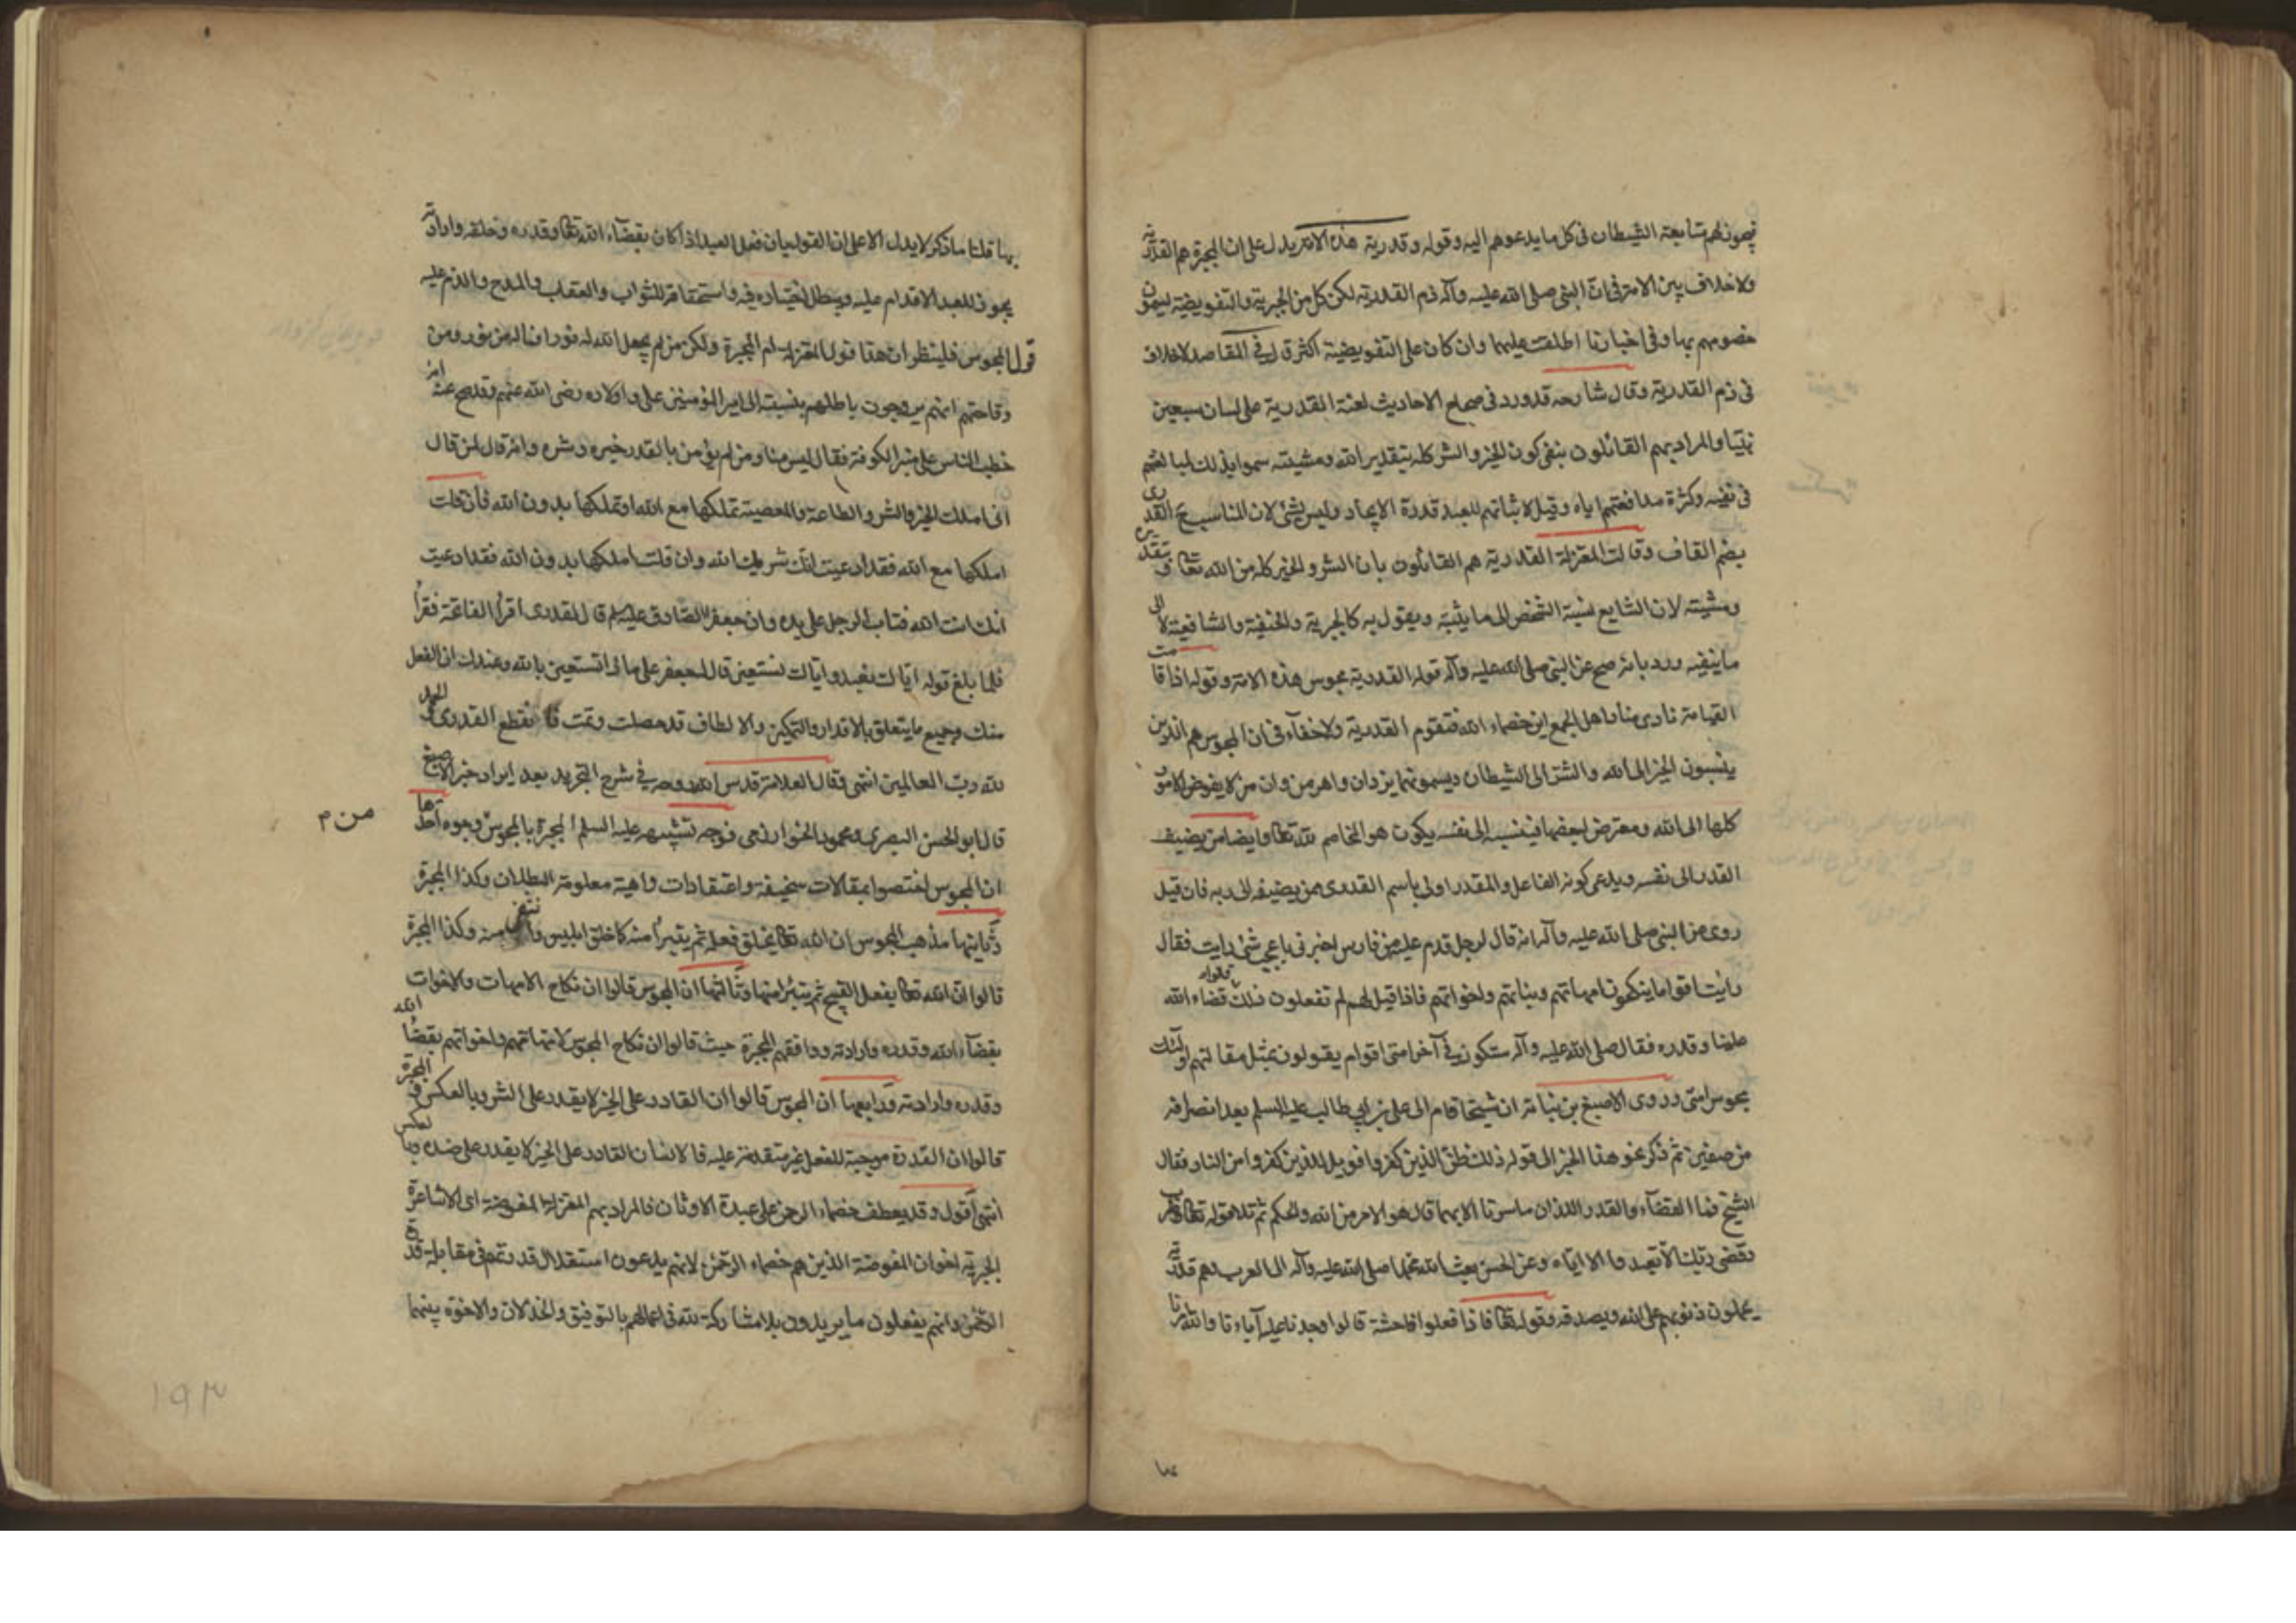 يجوز لهم متابعة الشيطان في كل ما يدعوهم اليه وقوله وقدرية هذه الامة يدل على ان المجبرة هم القدرية
ولا خلاف بين الامة في ان النبي صلى الله عليه وآله ذم القدرية لكن كل من الجبرية والتفويضية يسمون
خصومهم بها وفي اخبارنا اطلقت عليهما وان كان على التفويضية اكثر قال في المقاصد لا خلاف
في ذم القدرية وقال شارحه قد ورد في صحاح الاحاديث لعنة القدرية على لسان سبعين
نبيا والمراد بهم القائلون بنفي كون الخير والشر كله بتقدير الله ومشيته سموا بذلك لمبالغتهم
في نفيه وكثرة مدافعتهم اياه وقيل لاثباتهم للعبد قدرة الايجاد وليس بشئ لان المناسب ح القدري
بضم القاف وقالت المعتزلة القدرية هم القائلون بان الشر والخير كله من الله تعالى وبتقديره
ومشيته لان الشايع نسبة الشخص الى ما يثبته ويقول به كالجبرية والحنفية والشافعية لا الى
ما ينفيه ورد بانه صح عن النبي صلى الله عليه وآله قوله القدرية مجوس هذه الامة وقوله اذا قامت
القيامة نادى مناد اهل الجمع اين خصماء الله فتقوم القدرية ولا خفاء في ان المجوس هم الذين
ينسبون الخير الى الله والشر الى الشيطان ويسمونهما يزدان واهرمن وان من لا يفوض الامور
كلها الى الله ومعترض لبعضها فينسبه الى نفسه يكون هو المخاصم لله تعالى وايضا من يضيف
القدر الى نفسه ويدعي كونه الفاعل والمقدر اولى باسم القدري ممن يضيفه الى ربه فان قيل
روي عن النبي صلى الله عليه وآله انه قال لرجل قدم عليه من فارس اخبرني باعجب شئ رايت فقال
رايت اقواما ينكحون امهاتهم وبناتهم واخواتهم فاذا قيل لهم لم تفعلون ذلك قالوا قضاء الله
علينا وقدره فقال صلى الله عليه وآله ستكون في آخر امتي اقوام يقولون بمثل مقالتهم اولئك
مجوس امتي وروى الاصبغ بن نباتة ان شيخا قام الى علي بن ابي طالب عليه السلم بعد انصرافه
من صفين ثم ذكر نحو هذا الخبر الى قوله ذلك ظن الذين كفروا فويل للذين كفروا من النار فقال
الشيخ فما القضاء والقدر اللذان ما سرنا الا بهما قال هو الامر من الله والحكم ثم تلا قوله تعالى
وقضى ربك الا تعبدوا الا اياه وعن الحسن بعث الله محمدا صلى الله عليه وآله الى العرب وهم قدرية
يحملون ذنوبهم على الله ويصدقه قوله تعالى فاذا فعلوا فاحشة قالوا وجدنا عليه آباءنا والله امرنا
بها قلنا ما ذكر لا يدل الا على ان القول بان فعل العبد اذا كان بقضاء الله تعالى وقدره وخلقه وارادته
يجوز للعبد الاقدام عليه ويبطل اختياره فيه واستحقاقه للثواب والعقاب والمدح والذم عليه
قول المجوس فلينظر ان هذا قول المعتزلة ام المجبرة ولكن من لم يجعل الله له نورا فما له من نور ومن
وقاحتهم انهم يروجون باطلهم بنسبته الى امير المؤمنين علي واولاده رضي الله عنهم وقد صح عنه انه
خطب الناس على منبر الكوفة فقال ليس منا من لم يؤمن بالقدر خيره وشره وانه قال لمن قال
اني املك الخير والشر والطاعة والمعصية تملكها مع الله او تملكها بدون الله فان قلت
املكها مع الله فقد ادعيت انك شريك الله وان قلت املكها بدون الله فقد ادعيت
انك انت الله فتاب الرجل على يده وان جعفر الصادق عليه السلم قال لقدري اقرأ الفاتحة فقرأ
فلما بلغ قوله اياك نعبد واياك نستعين قال له جعفر على ماذا تستعين بالله وعندك ان الفعل
منك وجميع ما يتعلق بالاقدار والتمكين والالطاف قد حصلت وتمت فانقطع القدري والحمد
لله رب العالمين انتهى وقال العلامة قدس الله روحه في شرح التجريد بعد ايراد خبر الاصبغ
قال ابو الحسن البصري ومحمود الخوارزمي فوجه تشبيهه عليه السلم المجبرة بالمجوس من وجوه احدها
من م
ان المجوس اختصوا بمقالات سخيفة واعتقادات واهية معلومة البطلان وكذا المجبرة
وثانيها مذهب المجوس ان الله تعالى يخلق فعله ثم يتبرأ منه كما خلق ابليس وانتفى منه وكذا المجبرة
قالوا ان الله تعالى يفعل القبيح ثم يتبرأ منها وثالثها ان المجوس قالوا ان نكاح الامهات والاخوات
بقضاء الله وقدره وارادته ووافقهم المجبرة حيث قالوا ان نكاح المجوس لامهاتهم واخواتهم بقضاء الله
وقدره وارادته ورابعها ان المجوس قالوا ان القادر على الخير لا يقدر على الشر وبالعكس والمجبرة
قالوا ان القدرة موجبة للفعل غير متقدمة عليه فالانسان القادر على الخير لا يقدر على ضده وبالعكس
انتهى اقول وقد يعطف خصماء الرحمن على عبدة الاوثان فالمراد بهم المعتزلة المفوضة اي الاشاعرة
الجبرية اخوان المفوضة الذين هم خصماء الرحمن لانهم يدعون استقلال قدرتهم في مقابلة قدرة
الرحمن وانهم يفعلون ما يريدون بلا مشاركة لله في اعمالهم بالتوفيق والخذلان والاخوة بينهما
١٩٣